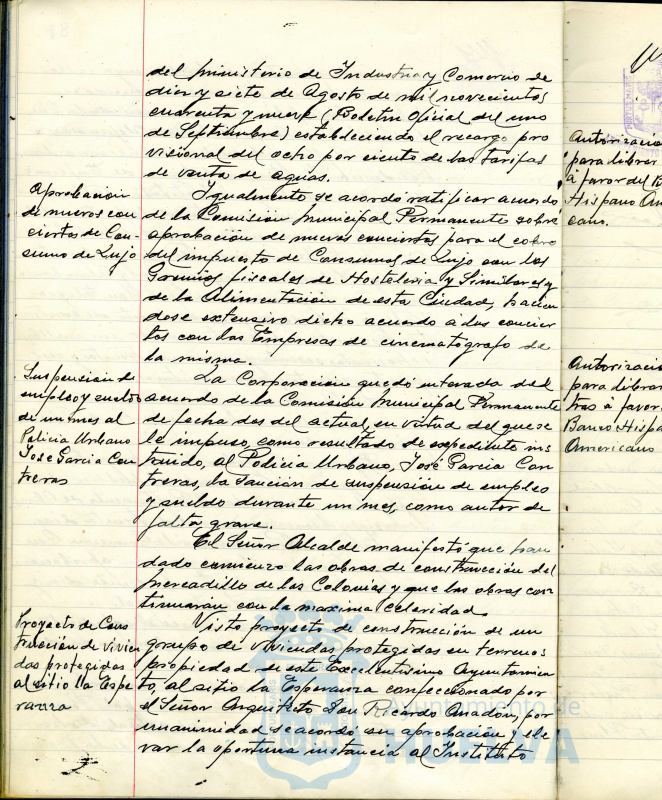 del ministerio de Industria y Comercio de
diez y siete de Agosto de mil novecientos
cuarenta y nueve (Boletín Oficial del uno
de Septiembre) estableciendo el recargo pro
visional del ocho por ciento de las tarifas
de venta de aguas.
Aprobación
de nuevos con
ciertos de Con-
sumo de Lujo
Igualmente se acordó ratificar acuerdo
de la Comisión Municipal Permanente sobre
aprobación de nuevos conciertos para el cobro
del impuesto de Consumos de Lujo con los
Gremios fiscales de Hostelería y Similares y
de la Alimentación de esta Ciudad, hacien
dose extensivo dicho acuerdo a los concier
tos con las Empresas de cinematógrafo de
la misma.
Suspensión de
empleo y sueldo
de un mes al
Policia Urbano
José Garcia Con
treras
La Corporación quedó enterada del
acuerdo de la Comisión Municipal Permanente
de fecha dos del actual, en virtud del que se
le impuso, como resultado de expediente ins
truido, al Policia Urbano, José Garcia Con
treras, la sanción de suspensión de empleo
y sueldo durante un mes, como autor de
falta grave.
El Señor Alcalde manifestó que han
dado comienzo las obras de construcción del
mercadillo de las Colonias y que las obras con
tinuaran con la maxima celeridad
Proyecto de Cons
trucción de vivien
das protegidas
al sitio la Espe
ranza
Visto proyecto de construcción de un
grupo de viviendas protegidas en terrenos
propiedad de este Excelentísimo Ayuntamien
to, al sitio la Esperanza confeccionado por
el Señor Arquitecto Don Ricardo Anadón, por
unanimidad se acordó su aprobación y ele
var la oportuna instancia al Instituto
Autorizació
para librar
á favor del B
Hispano Am
cano.
Autorizació
para librar
tras á favor
Banco Hispa
Americano
Ayuntamiento de
HUELVA